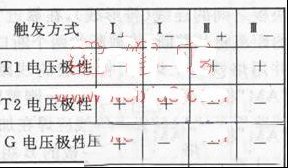 触发方式 I₊ I₋ Ⅲ₊ Ⅲ₋
T1电压极性 － － ＋ ＋
T2电压极性 ＋ ＋ － －
G电压极性压 ＋ － －